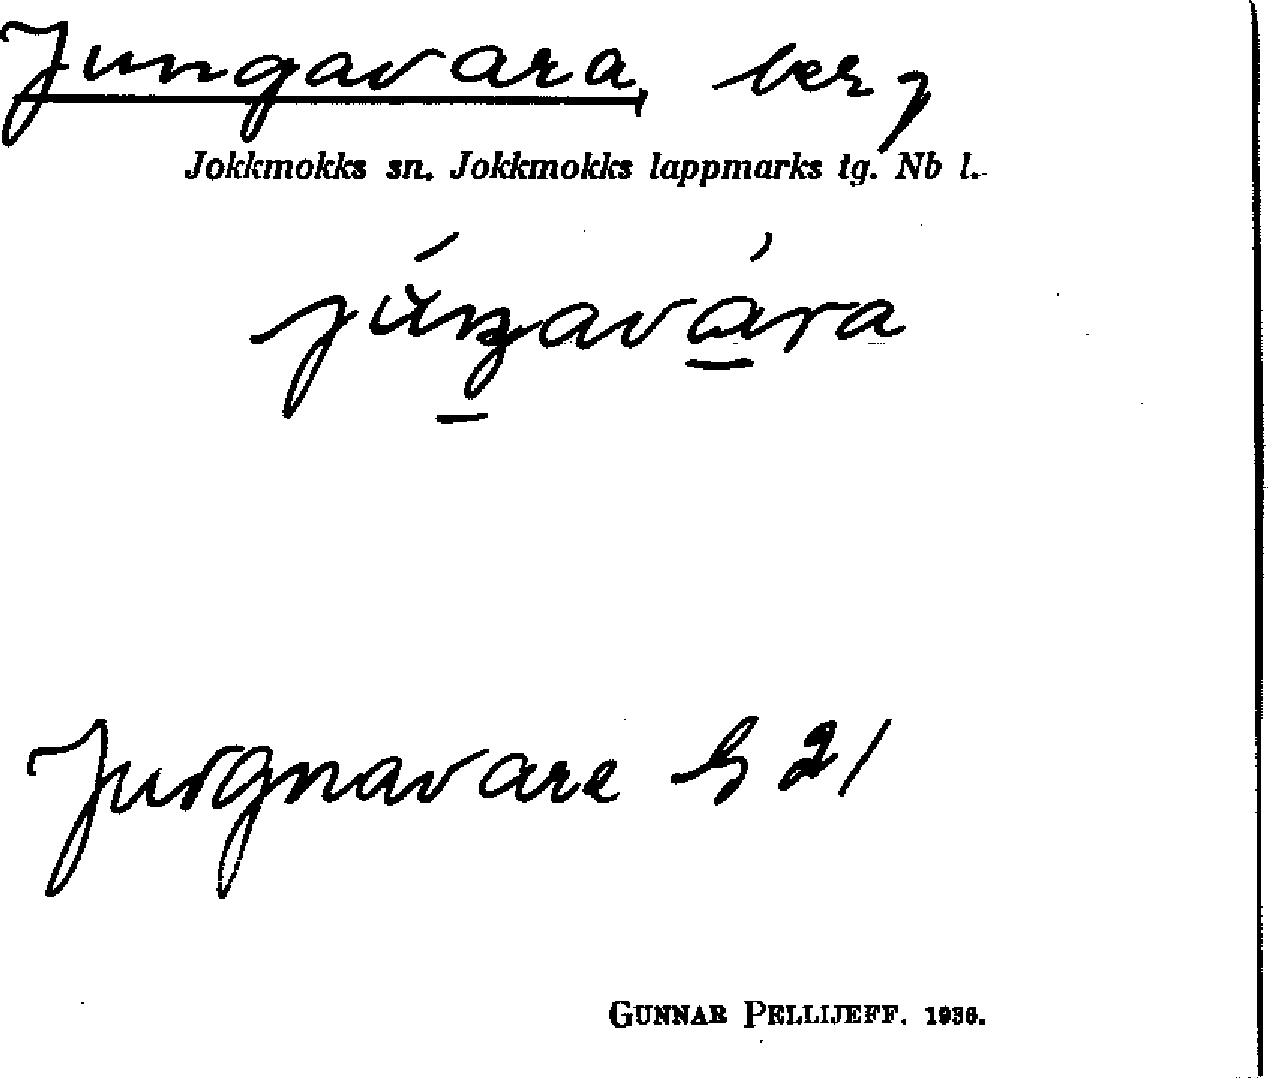 Jungavara, berg
Jokkmokks sn. Jokkmokks lappmarks tg. Nb l.
júŋavára
Jurgnavare G 21
GUNNAR PELLIJEFF. 1936.